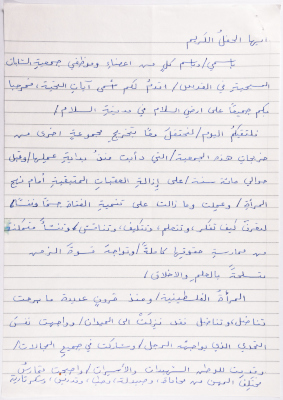 أيها الحفل الكريم
باسمي/وباسم كل من أعضاء وموظفي جمعية الشابات
المسيحية في القدس/ أقدم لكم أسمى آيات التحية/ مرحبا
بكم جميعًا على أرض السلام في مدينة السلام/
نلتقيكم اليوم/ لنحتفل معًا بتخريج مجموعة أخرى من
خريجات هذه الجمعية/ التي دأبت منذ بداية عملها/ وقبل
حوالي مائة سنة/ على إزالة العقبات الحقيقية أمام
المرأة/ وعملت وما زالت على تنمية الفتاة جسمًا
لتعرف كيف تفكر/ وتتعلم/ وتتكيف/ وتناقش/
من ممارسة حقوقها كاملة/ وتواجه قسوة الزمن
متسلحة بالعلم والأخلاق/
المرأة الفلسطينية/ ومنذ قرون عديدة ما برحت
تناضل/ وتناضل فقد نزلت إلى الميدان/ وواجهت نفس
التحدي الذي يواجهه الرجل/ وشاركت في جميع المجالات/
وقدمت للوطن الشهيدات والأسيرات/ وأصبحت تمارس
مختلف المهن من محاماة/ وصيدلة/ وطب/ وتدريس/